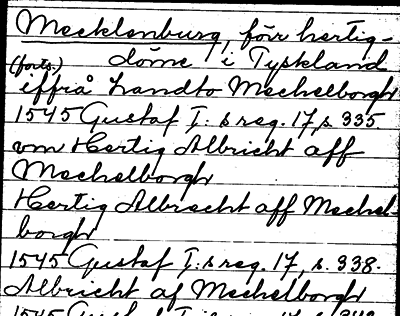 Mecklenburg, förr hertig-
(forts.) döme i Tyskland
iffrå Landto Mechelborgh
1545 Gustaf I:s reg. 17, s. 335.
vm Hertig Albricht aff
Mechelborgh
Hertig Albrecht aff Mechel-
borgh
1545 Gustaf I:s reg. 17, s. 338.
Albricht af Mechelborgh
1545 Gustaf I:s reg. 17, s.